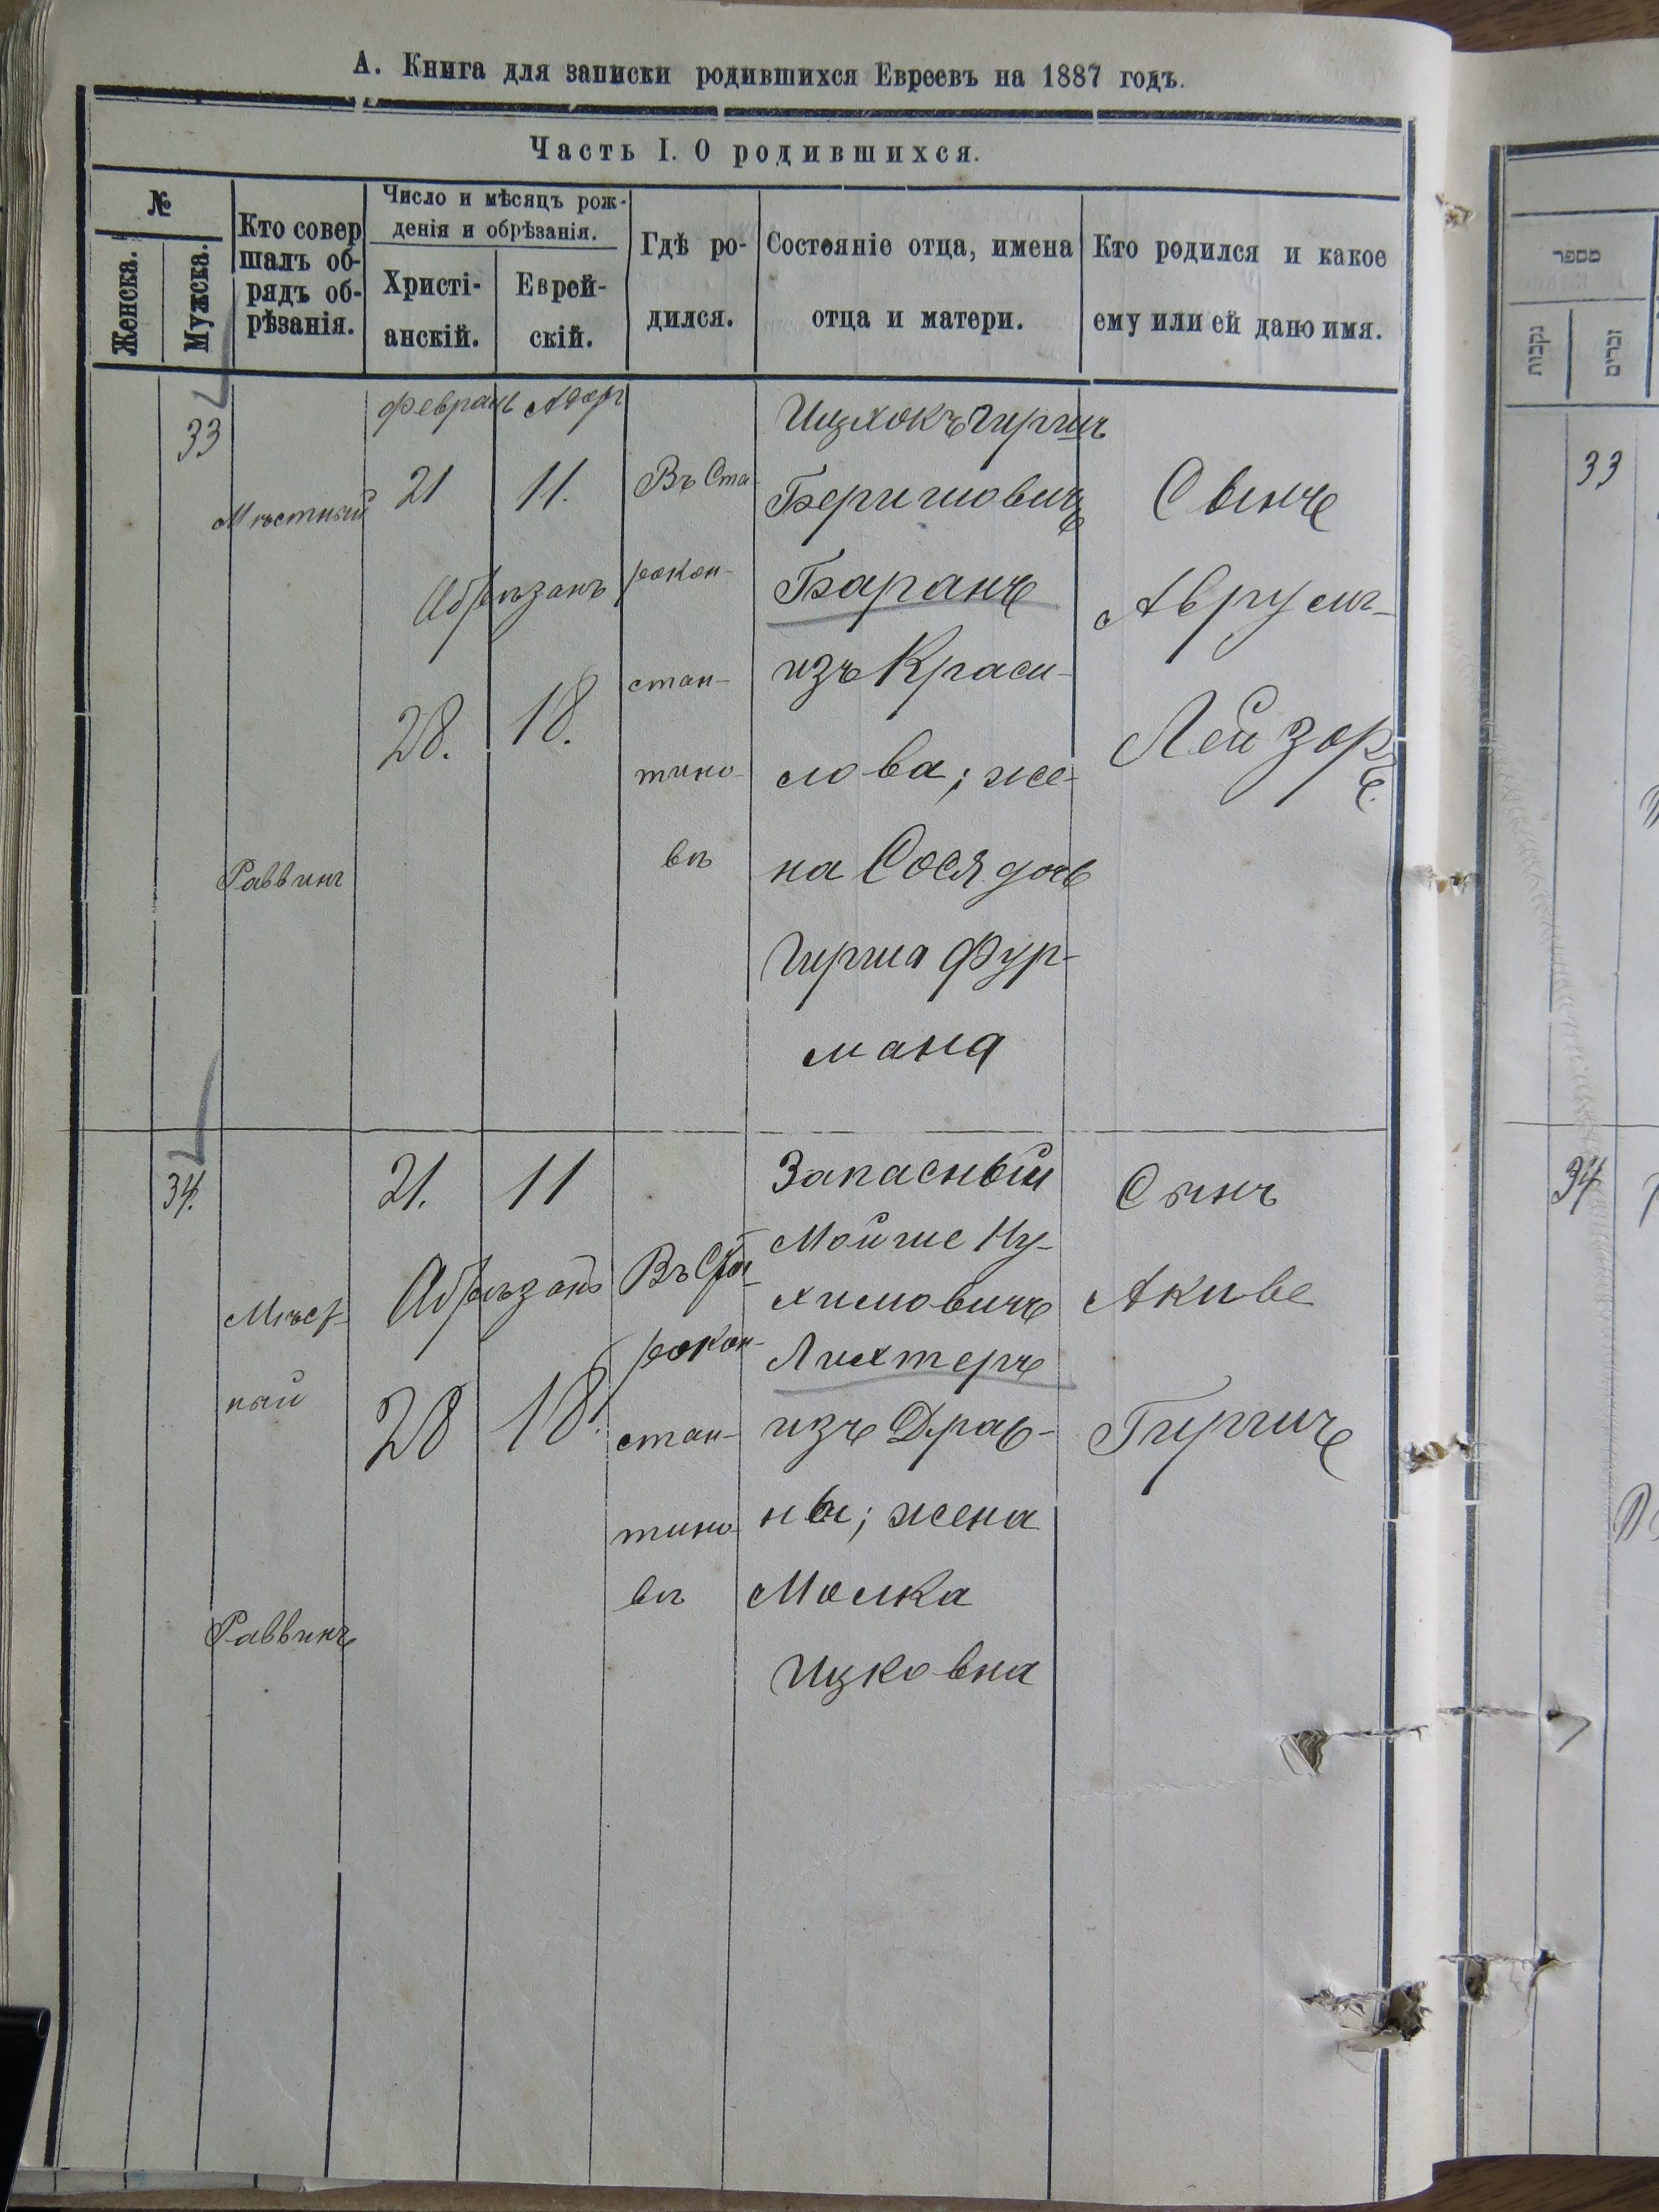 А. Книга для записки родившихся Евреевъ на 1887 годъ.
Часть I. О родившихся.
№
Женска.
Мужска.
Кто совер
шалъ об-
рядъ об-
рѣзанія.
Число и мѣсяцъ рож-
денія и обрѣзанія.
Христі-
анскій.
Еврей-
скій.
Гдѣ ро-
дился.
Состояніе отца, имена
отца и матери.
Кто родился и какое
ему или ей дано имя.
33
Мѣстный
Раввинъ
Февраль Адаръ
21 11.
Абрѣзанъ
28. 18.
Въ Ста-
рокон-
стан-
тино-
вѣ
Ицхокъ Гиршъ
Беришовичъ
Баранъ
изъ Краси-
лова; же-
на Сося дочь
Гирша Фур-
мана
Сынъ
Аврумъ-
Лейзоръ.
34.
Мѣст-
ный
Раввинъ
21. 11
Абрѣзанъ
28 18.
Въ Ста-
рокон-
стан-
тино-
вѣ
Запасный
Мойше Ну-
химовичъ
Лихтеръ
изъ Драб-
ны; жена
Малка
Ицковна
Сынъ
Акиве
Гиршъ
מספר
נקבות
זכרים
33
34